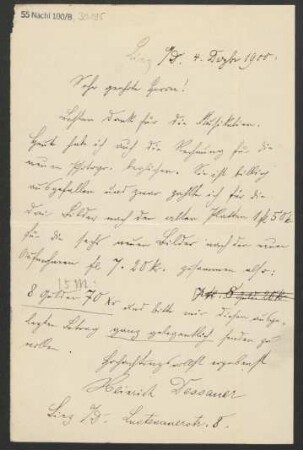 55 Nachl 100/B.
Linz a/D. 4. Dezbr 1900.
Sehr geehrte Herrn!
Besten Dank für die
Heute habe ich auch die Rechnung für die
neuen Photogr. beglichen. Sie ist billig
ausgefallen und zwar zahlte ich für die
drei Bilder nach der alten Platten 1 fl 50 k
für die sechs neuen Bilder nach der neuen
Aufnahme fl 7. 20 kr. zusammen also:
15 M.
8 Gulden 70 Kr und bitte mir diesen ausge-
legten Betrag ganz gelegentlich senden zu
wollen.
Hochachtungsvollst ergebenst
Heinrich Dessauer
Linz a/D. 8.